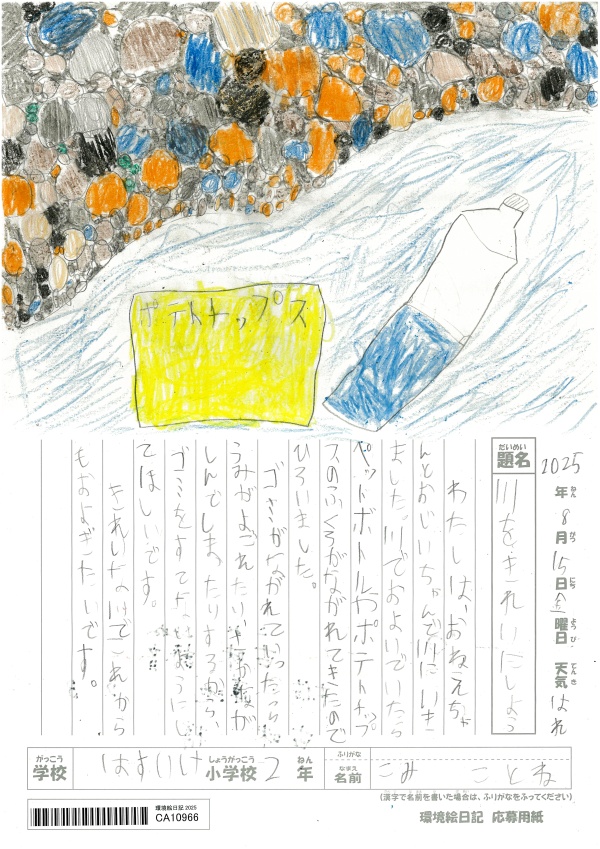 ポテトチップス
2025年8月15日金曜日 天気はれ
ねん がつ にち ようび てんき
だいめい
題名
川をきれいにしよう
わたしは、おねえちゃ
んとおじいちゃんで川にいき
ました。川でおよいでいたら
ペットボトルやポテトチップ
スのふくろがながれてきたので
ひろいました。
ゴミがながれていったら
うみがよごれたり、さかなが
しんでしまったりするから、
ゴミをすてないようにし
てほしいです。
きれいな川でこれから
もおよぎたいです。
がっこう
学校
はすいけ
しょうがっこう
小学校
2
ねん
年
ふりがな
なまえ
名前
こみ ことね
(漢字で名前を書いた場合は、ふりがなをふってください)
環境絵日記 2025
CA10966
環境絵日記 応募用紙